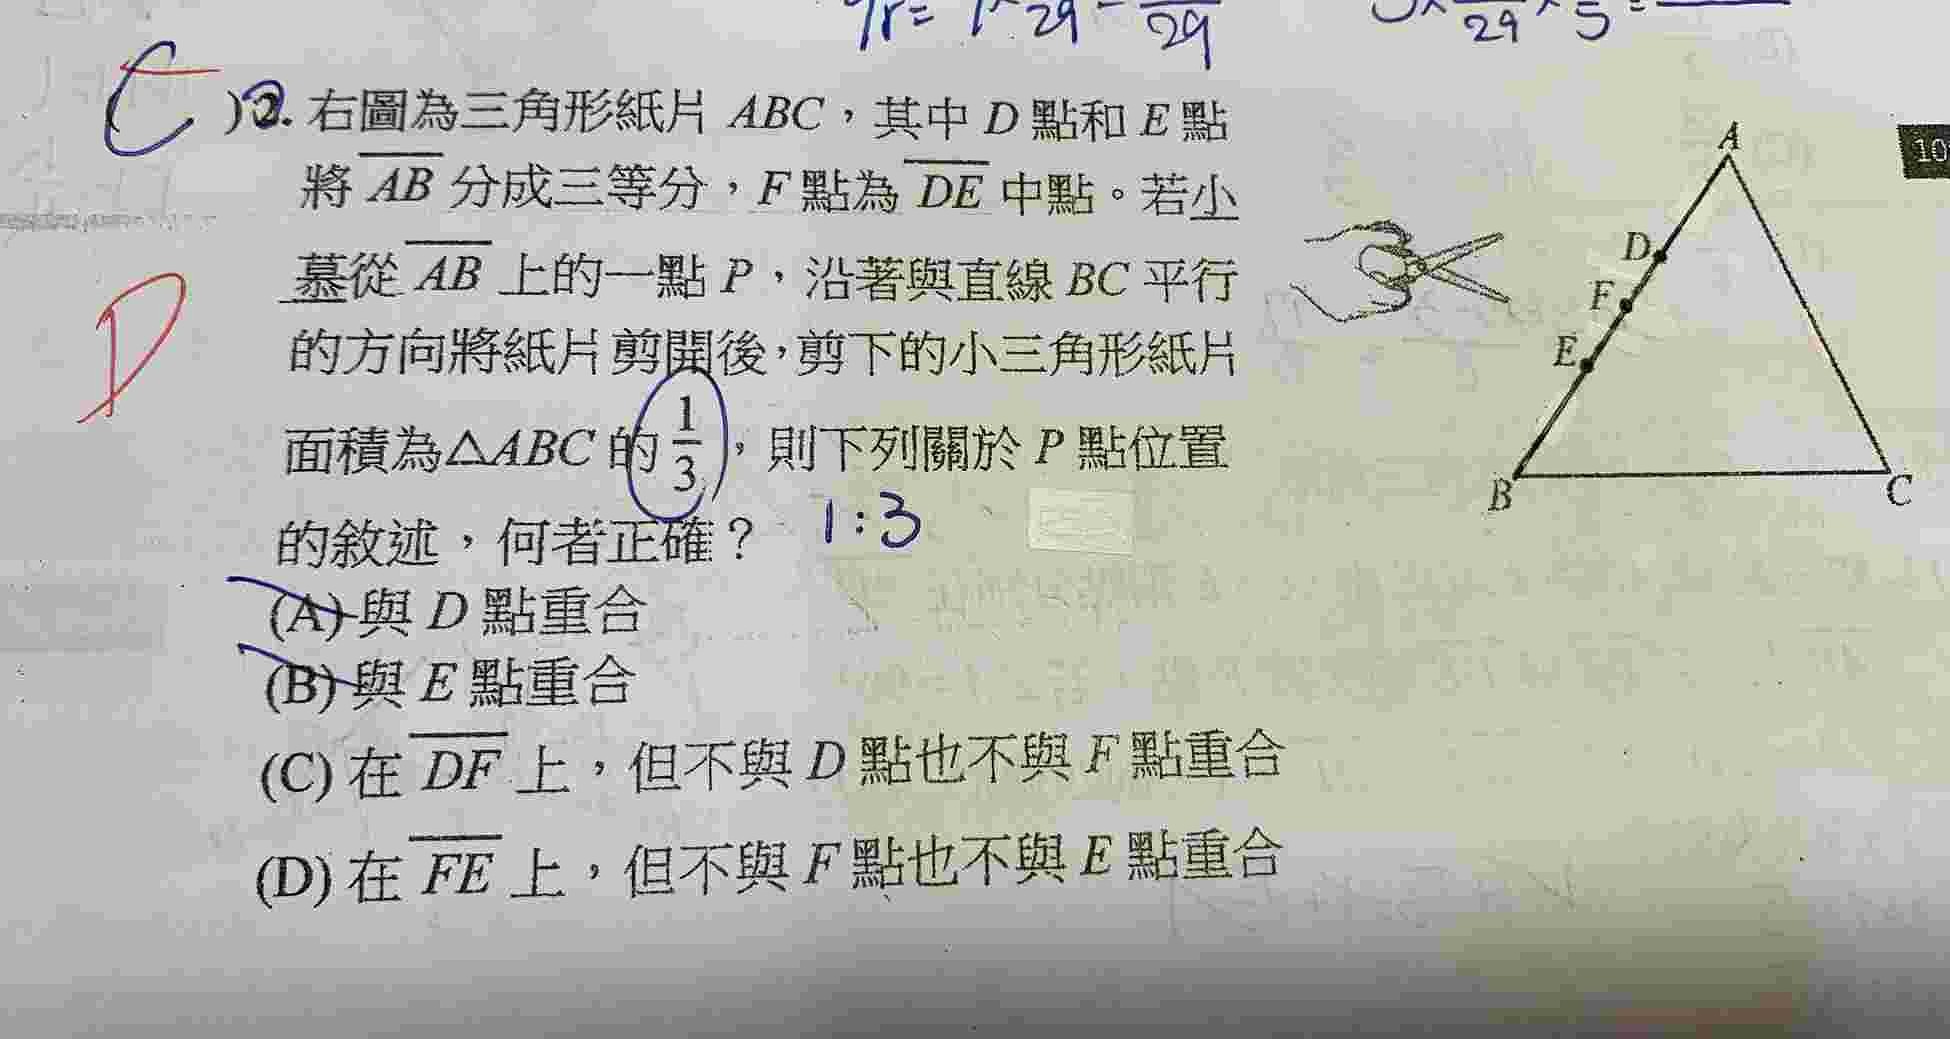 C )2. 右圖為三角形紙片 ABC，其中 D 點和 E 點
將 AB 分成三等分，F 點為 DE 中點。若小
慕從 AB 上的一點 P，沿著與直線 BC 平行
的方向將紙片剪開後，剪下的小三角形紙片
面積為△ABC 的 1/3，則下列關於 P 點位置
的敘述，何者正確？ 1:3
(A) 與 D 點重合
(B) 與 E 點重合
(C) 在 DF 上，但不與 D 點也不與 F 點重合
(D) 在 FE 上，但不與 F 點也不與 E 點重合
D
A
D
F
E
B
C
10